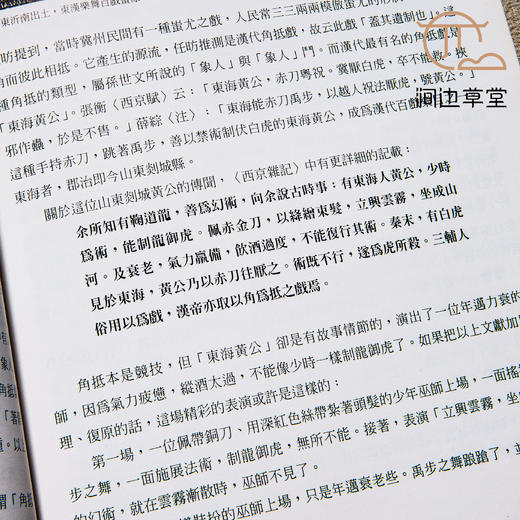 東沂南出土，東漢樂舞百戲畫像
昉提到，當時冀州民間有一種蚩尤之戲，人民常三三兩兩模倣蚩尤的形象
角而彼此相抵。它產生的源流，任昉推測是漢代角抵戲，故云此戲「蓋其遺制也」。這
種角抵的類型，屬孫世文所說的「象人」與「象人」鬥。而漢代最有名的角抵戲是
「東海黃公」。張衡〈西京賦〉云：「東海黃公，赤刀粵祝。冀厭白虎，卒不能救。挾
邪作蠱，於是不售。」薛綜〈注〉：「東海能赤刀禹步，以越人祝法厭虎，號黃公。」
這種手持赤刀，跳著禹步，善以禁術制伏白虎的東海黃公，成為漢代百戲
東海者，郡治即今山東剡城縣。
關於這位山東剡城黃公的傳聞，〈西京雜記〉中有更詳細的記載：
余所知有鞠道龍，善為幻術，向余說古時事：有東海人黃公，少時
為術，能制龍御虎。佩赤金刀，以絳繒束髮，立興雲霧，坐成山
河。及衰老，氣力羸備，飲酒過度，不能復行其術。秦末，有白虎
見於東海，黃公乃以赤刀往厭之。術既不行，遂為虎所殺。三輔人
俗用以為戲，漢帝亦取以角為抵之戲焉。
角抵本是競技，但「東海黃公」卻是有故事情節的，演出了一位年邁力衰的
師，因為氣力疲憊，縱酒太過，不能像少時一樣制龍御虎了。如果把以上文獻加
理、復原的話，這場精彩的表演或許是這樣的：
第一場，一位佩帶銅刀、用深紅色絲帶紮著頭髮的少年巫師上場，一面搖
步之舞，一面施展法術，制龍御虎，無所不能。接著，表演「立興雲霧，坐
的幻術，就在雲霧漸散時，巫師不見了。
裝扮的巫師上場，只是年邁衰老些。禹步之舞踉蹌了，
澗边草堂